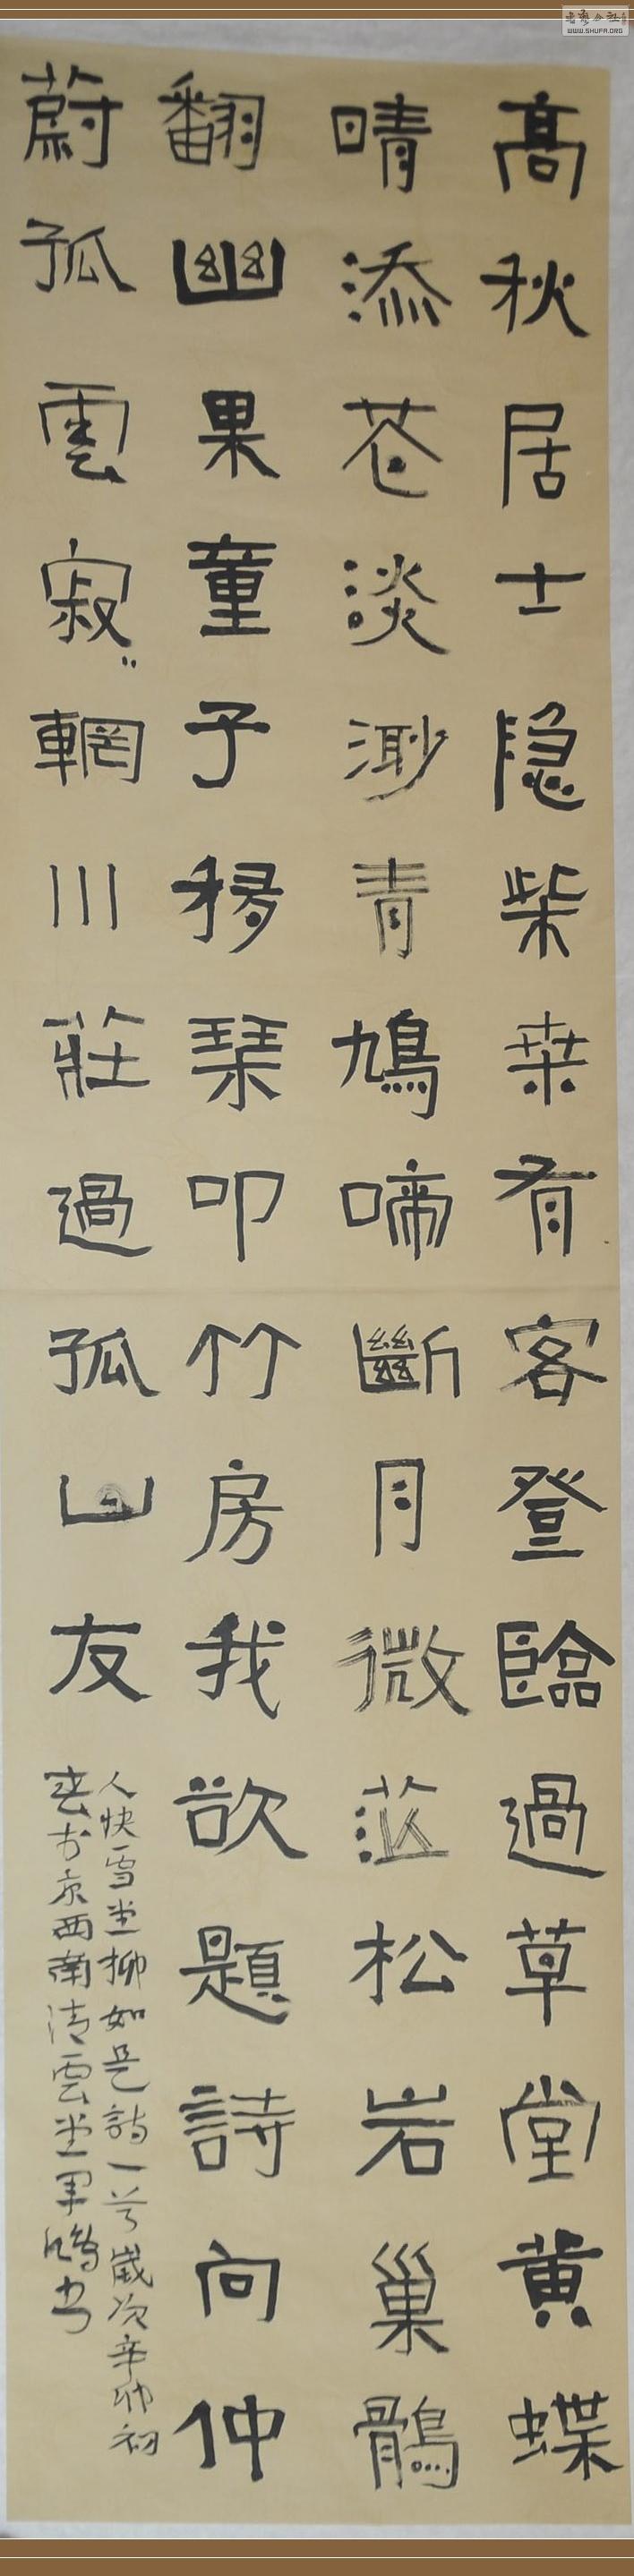 高秋居士隐柴桒有客登臨過草堂黄蝶
晴添苍淡渺青鳩啼斷月微茫松岩巢鶻
翻幽果童子移琹叩竹房我欲題詩向仲
蔚孤雲寂〃輞川莊過孤山友
人快雪堂柳如是詩一首歲次辛卯初
春於京西南清雲堂軍鵬书
WWW.SHUFA.ORG